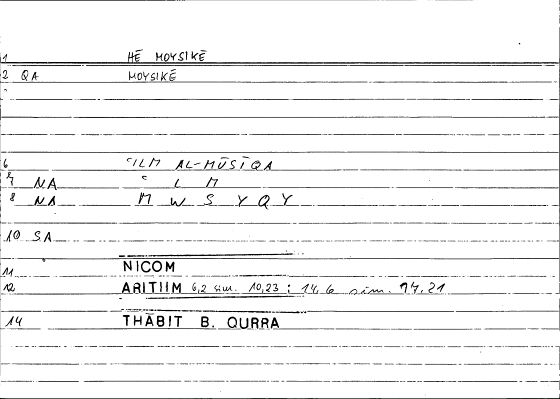 1 HĒ MOYSIKĒ
2 QA MOYSIKĒ
6 ʿILM AL-MŪSĪQA
7 NA ʿ L M
8 NA M W S Y Q Y
10 SA
11 NICOM
12 ARITIIM 6,2 sim. 10,23 : 14,6 sim. 17,21
14 THĀBIT B. QURRA